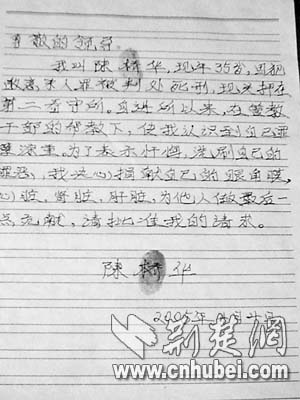 尊敬的领导:
我叫陈树华,现年35岁,因犯
故意杀人罪被判处死刑,现关押在
第二看守所。自进所以来,在管教
干部的帮教下,使我认识到自己罪
孽深重。为了表示忏悔,洗刷自己的
罪恶,我决心捐献自己的眼角膜,
心脏,肾脏,肝脏,为他人做最后一
点贡献,请批准我的请求。
陈树华
2005年 月十日
荆楚网
www.cnhubei.com